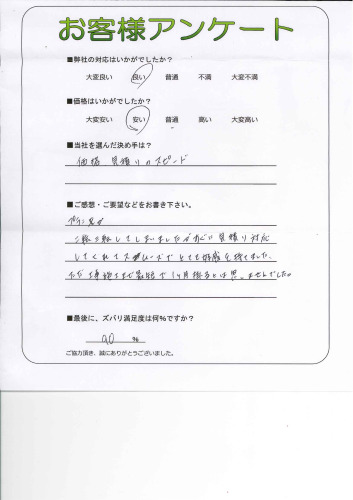 お客様アンケート
■弊社の対応はいかがでしたか?
大変良い 良い 普通 不満 大変不満
■価格はいかがでしたか?
大変安い 安い 普通 高い 大変高い
■当社を選んだ決め手は?
価格 見積りのスピード
■ご感想・ご要望などをお書き下さい。
プラン見が
二転三転してしまいましたがすぐに見積り対応
してくれてスムーズでとても好感を持てました。
ただ工事終了まで最短で1ヶ月掛るとは思いませんでした。
■最後に、ズバリ満足度は何%ですか?
90 %
ご協力頂き、誠にありがとうございました。